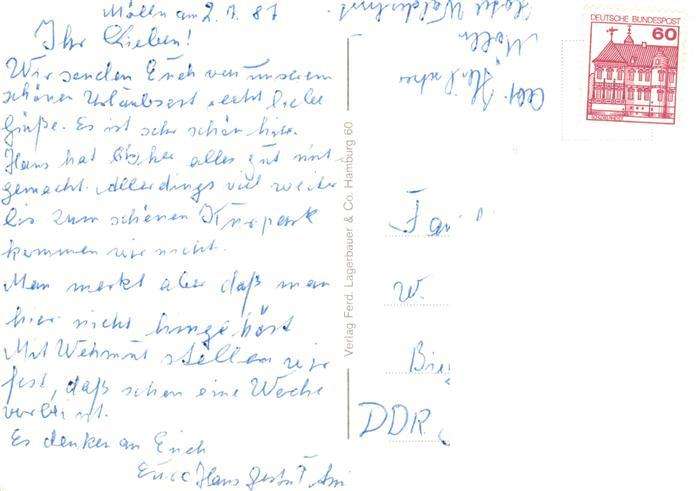 Mölln am 2.7.87
Ihr Lieben!
Wir senden Euch von unserem
schönen Urlaubsort recht liebe
Grüße. Es ist sehr schön hier.
Hans hat bisher alles gut mit
gemacht. Allerdings viel weiter
bis zum schönen Kurpark
kommen wir nicht.
Man merkt aber daß man
hier nicht hingehört
Mit Wehmut stellen wir
fest, daß schon eine Woche
vorbei ist.
Es denken an Euch
Hans
Mölln
Verlag Ferd. Lagerbauer & Co. Hamburg 60
DEUTSCHE BUNDESPOST
60
Fam
W.
DDR